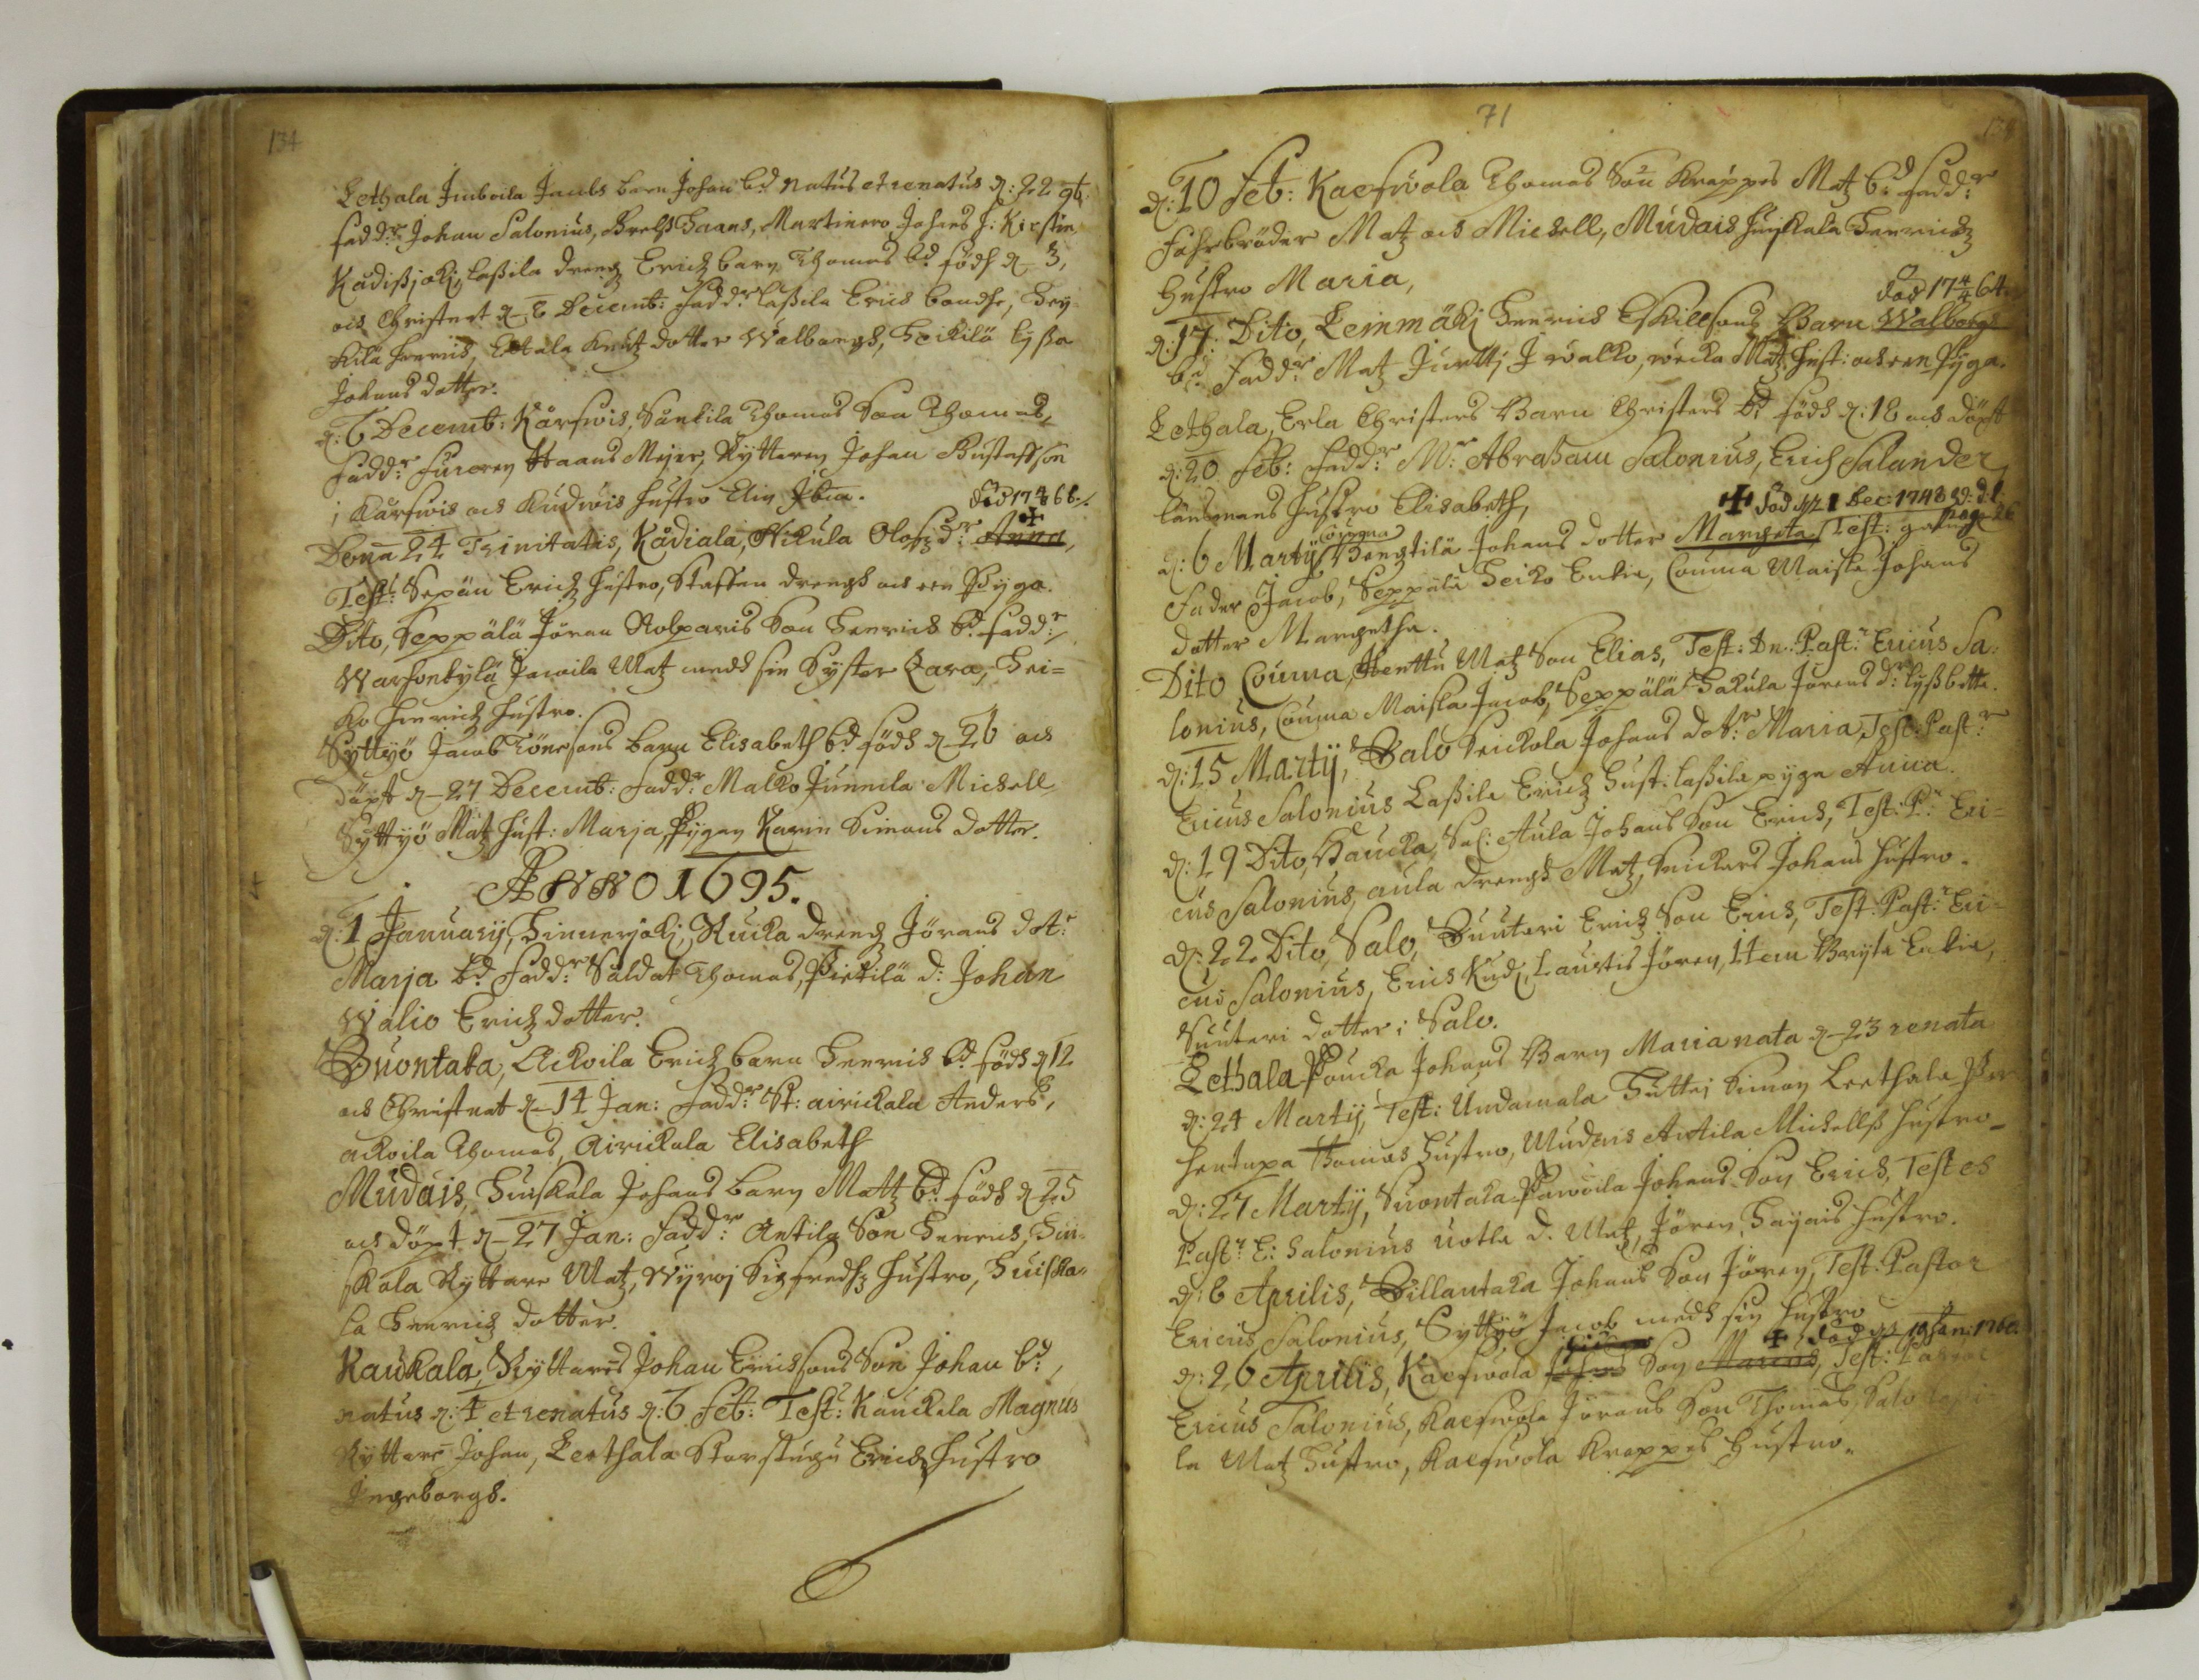 134
Lethala Junboila Jacobs barn Johan bd. natus et renatus d: 22 9b:
Faddr. Johan Salonius, Brelss Haans, Martinero Johans h: Kirstin,
Kådissjoki, Lassila dreng Erichz barn Thomas bd. född d– 3,
och Christnat d– 6 Decemb: Faddr. Lassila Erich bonde, Hey-
kila Henric, Ettala Knutz dotter Walborgh, Heikilä Lyssa
Johans dotter.
d: 6 Decemb: Kårfwis, Sånkila Thomas Son Thomas,
Faddr. Fureren Haans Mejer, Ryttaren Johan Gustafsson
i Kårfwis och Kudwis hustro Elin Ibm.
död 17 4/4 68.
Domca 24 Trinitatis, Kådiala, Nikula Olofz dr. Anna,
Test: Sepän Erichz hustro, Staffan drengh och een Pyga.
Dito, Seppälä Jöran Rolparis Son Henrich bd. Faddr.
Warfonkylä Jacoila Matz medh sin Syster Cara, Hei=
ko Henrichz hustro.
Syttyö Jacob Tönesons barn Elisabeth bd. född d– 26 och
döpt d– 27 Decemb: Faddr. Malko Junnila Michell
Syttyö Matz hust: Marja, Pygan Karin Simons dotter.
ANNO 1695.
d: 1 January, Hinnerjoki, Kucka dreng Jörans dotr
Marja bd. Faddr. Såldat Thomas, Pietilä d: Johan
Walio Erichz dotter.
Suontaka, Ackoila Erichz barn Henrich bd. född d 12
och Christnat d– 14 Jan: Faddr. St: airickala Anders,
ackoila Thomas, Airickala Elisabeth
Mudais, Huiskala Johans barn Mattz bd. född d 25
och döpt d– 27 Jan: Faddr. Antila Son Henrich, Hui-
skala Ryttare Matz, Wyroj Sigfredhz hustro, Huiska-
la Henrichz dotter.
Kaukala, Ryttares Johan Ericssons Son Johan bd.,
natus d: 4 et renatus d: 6 Feb: Test: Kauckala Magnus
Ryttare Johan, Leethala Storstugu Erichz hustro
Ingeborgh.
71
d: 10 Feb: Kaefwola Thomas Son Kreppes Matz bd. Faddr.
Fahrbröder Matz och Michell, Mudais Huiskala Henrichz
hustro Maria,
död 17 4/4 64
d: 17: Dito, Leinmäki Henrich Eskillsons Barn Walborg
bd. Faddr. Matz Jurttj J walko, wecka Matz hust: och een Pyga.
Lethala, Erla Christers Barn Christers bd. född d: 18 och döpt
d: 20 Feb: Faddr. Mr. Abraham Salonius, Erich Salander
Länsmans hustro Elisabeth,
✝ död d 1 Dec: 1748
d: 6 Martij Couma Bengtilä Johans dotter Margeta, Test: gamble
Fader Jacob, Seppälä Heiko Enkia, Couma Maisla Johans
dotter Margetha.
Dito Couma, Henttu Matz Son Elias, Test: Dn. Pastr. Ericus Sa-
lonius, Couma Maisla Jacob, Seppälä Hakula Jörens dr Lyssbetta.
d: 15 Martij, Salo Knickola Johans dotr. Maria, Test: Pastr.
Ericus Salonius Lassila Erichz hust: Lassila pyga Anna.
d: 19 Dito, Haucka, Sal: Aula Johans Son Erich, Test: Pr. Eri=
cus Salonius, aula drengh Matz, Knickars Johans hustro.
d: 22 Dito, Salo, Suuteri Erichz Son Erich, Test: Pastr. Eri-
cus Salonius, Erich Kudj, Laurtis Jören, Item Bryta Enkia,
Suuteri dotter i Salo.
Lethala Poucka Johans Barn Maria nata d– 23 renata
d: 24 Martij, Test: Undamala Huttej Simon Leethala Per
hentupa Thomas hustro, Mudais Antila Michells hustro
d: 27 Martij, Suontaka Pawoila Johans Son Erich, Testes
Pastr. E: Salonius Uotla d. Matz, Jören, Hayais hustro.
d: 6 Aprilis, Sillantaka Johans Son Jören, Test: Pastor
Ericus Salonius, Syttyö Jacob medh sin hustro
✝ död d 19 Jan: 1760
d: 26 Aprilis, Kaefwola Johans Son Marcus, Test: Pastor
Ericus Salonius, Kaefwola Jörans Son Thomas, Salo
la Matz hustro, Kaefwola Kreppes hustro.